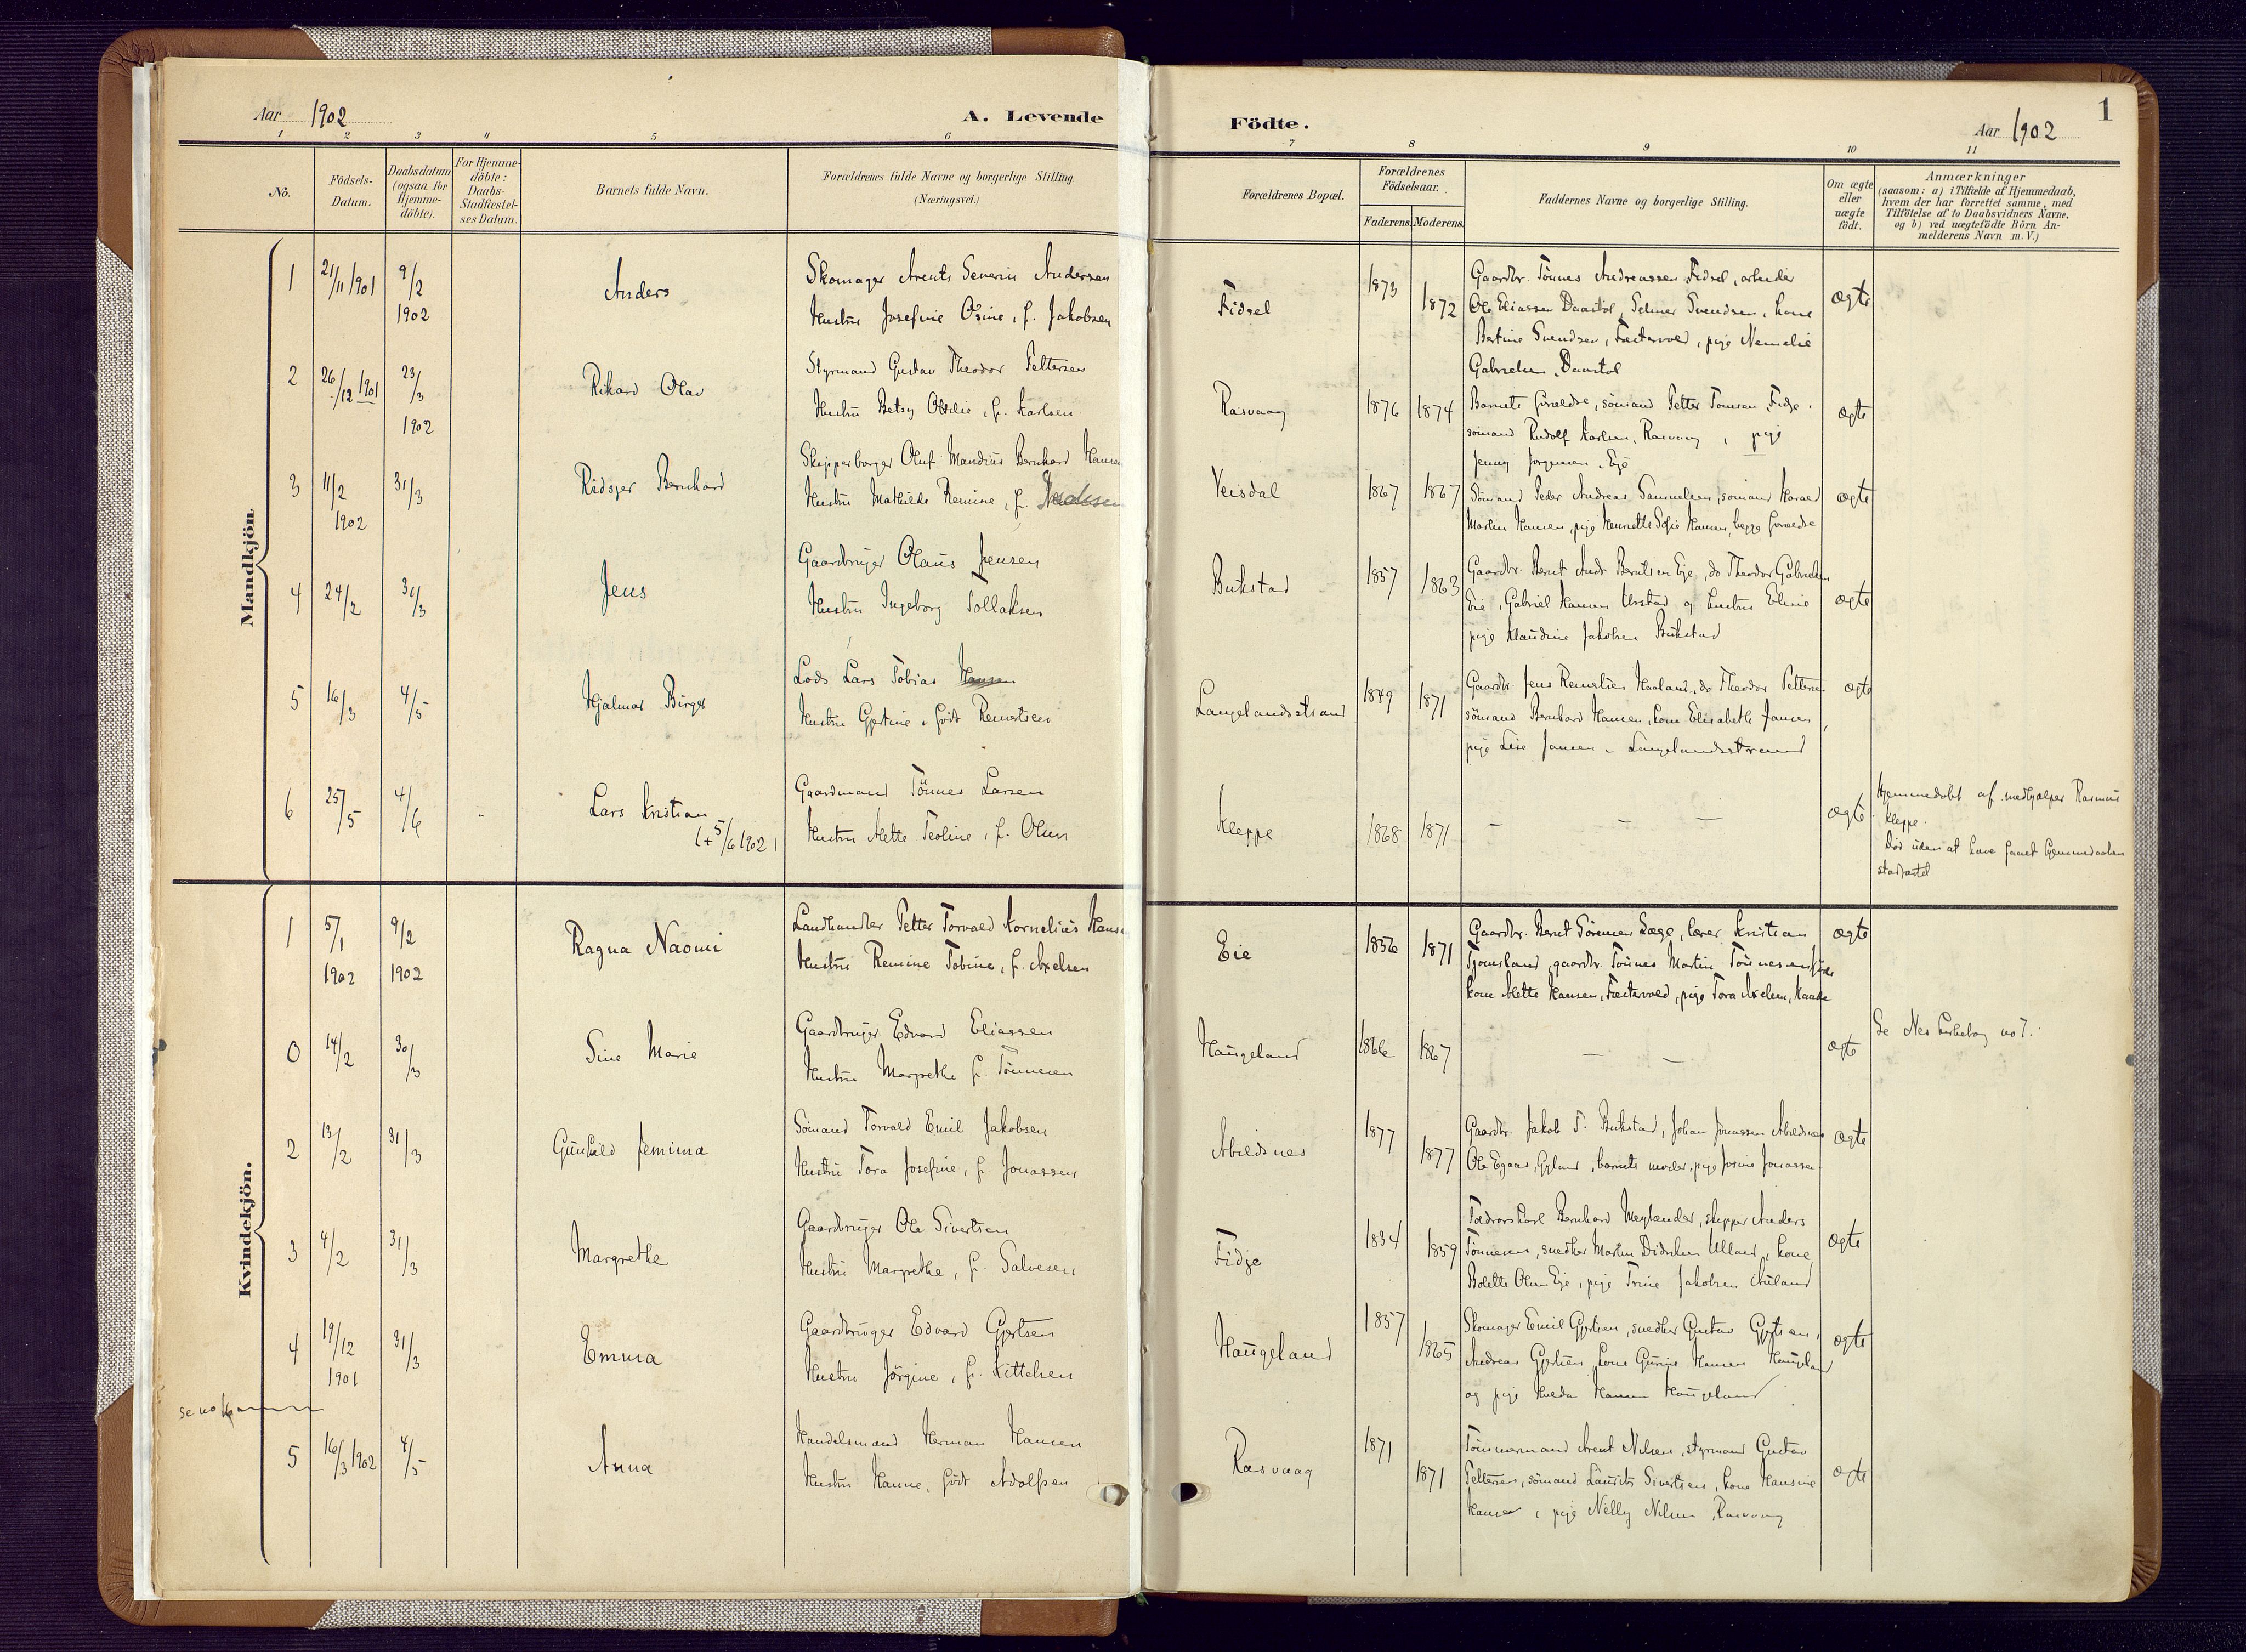 Aar 1902
A. Levende
1 2 3 4 5 6
No.
Födsels-
Datum.
Daabsdatum
(ogsaa for
Hjemme-
döbte).
For Hjemme-
döbte:
Daabs-
Stadfæstel-
ses Datum.
Barnets fulde Navn.
Forældrenes fulde Navne og borgerlige Stilling.
(Næringsvei.)
Mandkjön.
1 21/11 1901 9/2 Anders Skomager Arents Severin Andersen
1902 Hustru Josefine Osine, f. Jakobsen
2 26/12 1901 23/3 Rikard Olav Styrmand Gustav Theodor Pettersen
1902 Hustru Betsy Otilie, f. Karlsen
3 11/2 31/3 Ridsjer Bernhard Skipperborger Oluf Mandius Bernhard Hansen
1902 Hustru Mathilde Remine, f.
4 24/2 31/3 Jens Gaardbruger Olaus Jensen
Hustru Ingeborg Tollaksen
5 16/3 4/5 Hjalmar Birger Lods Lars Tobias Hansen
Hustru Gjertine, födt Reinertsen
6 25/5 4/6 Lars Kristian Gaardmand Tönnes Larsen
(+ 5/6 1902) Hustru Mette Teoline, f. Olsen
Kvindekjön.
1 5/1 9/2 Ragna Naomi Landhandler Petter Torvald Kornelius Hansen
1902 1902 Hustru Remine Tobine, f. Axelsen
0 14/2 30/3 Sine Marie Gaardbruger Edvard Eliassen
Hustru Margrethe f. Tönnesen
2 13/2 31/3 Gunhild Jemima Sömand Torvald Emil Jakobsen
Hustru Tora Josefine, f. Jonassen
3 4/2 31/3 Margrethe Gaardbruger Ole Sivertsen
Hustru Margrethe, f. Salvesen
4 19/12 31/3 Emma Gaardbruger Edvard Gjertsen
1901 Hustru Jörgine, f. Kittelsen
se no 16
5 16/3 1902 4/5 Anna Handelsmand Herman Hansen
Hustru Hanne, födt Adolfsen
Födte.
Aar 1902
1
7 8 9 10 11
Forældrenes Bopæl.
Forældrenes
Födselsaar.
Faderens. Moderens.
Faddernes Navne og borgerlige Stilling.
Om ægte
eller
uægte
födt.
Anmærkninger
(saasom: a) i Tilfælde af Hjemmedaab,
hvem der har forrettet samme, med
Tilföielse af to Daabsvidners Navne,
og b) ved uægtefödte Börn An-
melderens Navn m. V.)
Fidsel 1873 1872 Gaardbr. Tönnes Andreassen Fidsel, arbeider
Ole Eliassen Daastöl, Selmer Svendsen, kone ægte
Bertine Svendsen, pige
Gabrielsen, Daastöl
Rasvaag 1876 1874 Barnets forældre, sömand Petter Tomsen Fidje, ægte
sömand Rudolf Karlsen, Rasvaag, pige
Jenny Jörgensen, Eje
Veisdal 1867 1867 Sömand Peder Andreas Samuelsen, sömand Harald ægte
Martin Hansen, pige Henriette Sofie Hansen, begge forældre
Bukstad 1857 1863 Gaardbr. Bernt Andr Berntsen Eje, do Theodor Gabrielsen
Eie, Gabriel Hansen Urstad og hustru Eline ægte
pige Klaudine Jakobsen Bukstad
Langelandsstrand 1849 1871 Gaardbr. Jens Reinertsen Haaland, do Theodor Pettersen ægte
sömand Bernhard Hansen, kone Elisabeth Jansen,
pige Lise Jansen, Langelandsstrand
Kleppe 1868 1871 — — — ægte Hjemmedöbt af medhjælper Rasmus
Kleppe.
Död uden at have faaet hjemmedaaben
stadfæstet
Eie 1856 1871 Gaardbr. Bernt Sörensen Lægd, lærer Kristian ægte
Tjomsland, gaardbr. Tönnes Martin Tönnesen
kone Mette Hansen, pige Tora Axelsen,
Haugeland 1866 1867 — — ægte Se Nes kirkebog no 7.
Abildsnes 1877 1877 Gaardbr. Jakob T. Bukstad, Johan Jonassen Abildsnes ægte
Ole Egaas, Gyland, barnets moder, pige Josine Jonassen
Fidje 1834 1859 Bernhard Meylænder, skipper Anders
Tönnesen, snedker Morten Didriksen Ulland, kone ægte
Bolette Olsen Eje, pige Trine Jakobsen Auland
Haugeland 1857 1865 Skomager Emil Gjertsen, snedker Gustav Gjertsen, ægte
Andreas Gjertsen, kone Gurine Hansen Haugeland
og pige Hulda Hansen Haugeland
Rasvaag 1871 1871 Tömmermand Arent Nilsen, styrmand Gustav
Pettersen, sömand Laurits Sivertsen, kone Hansine ægte
Hansen, pige Nelly Nilsen, Rasvaag